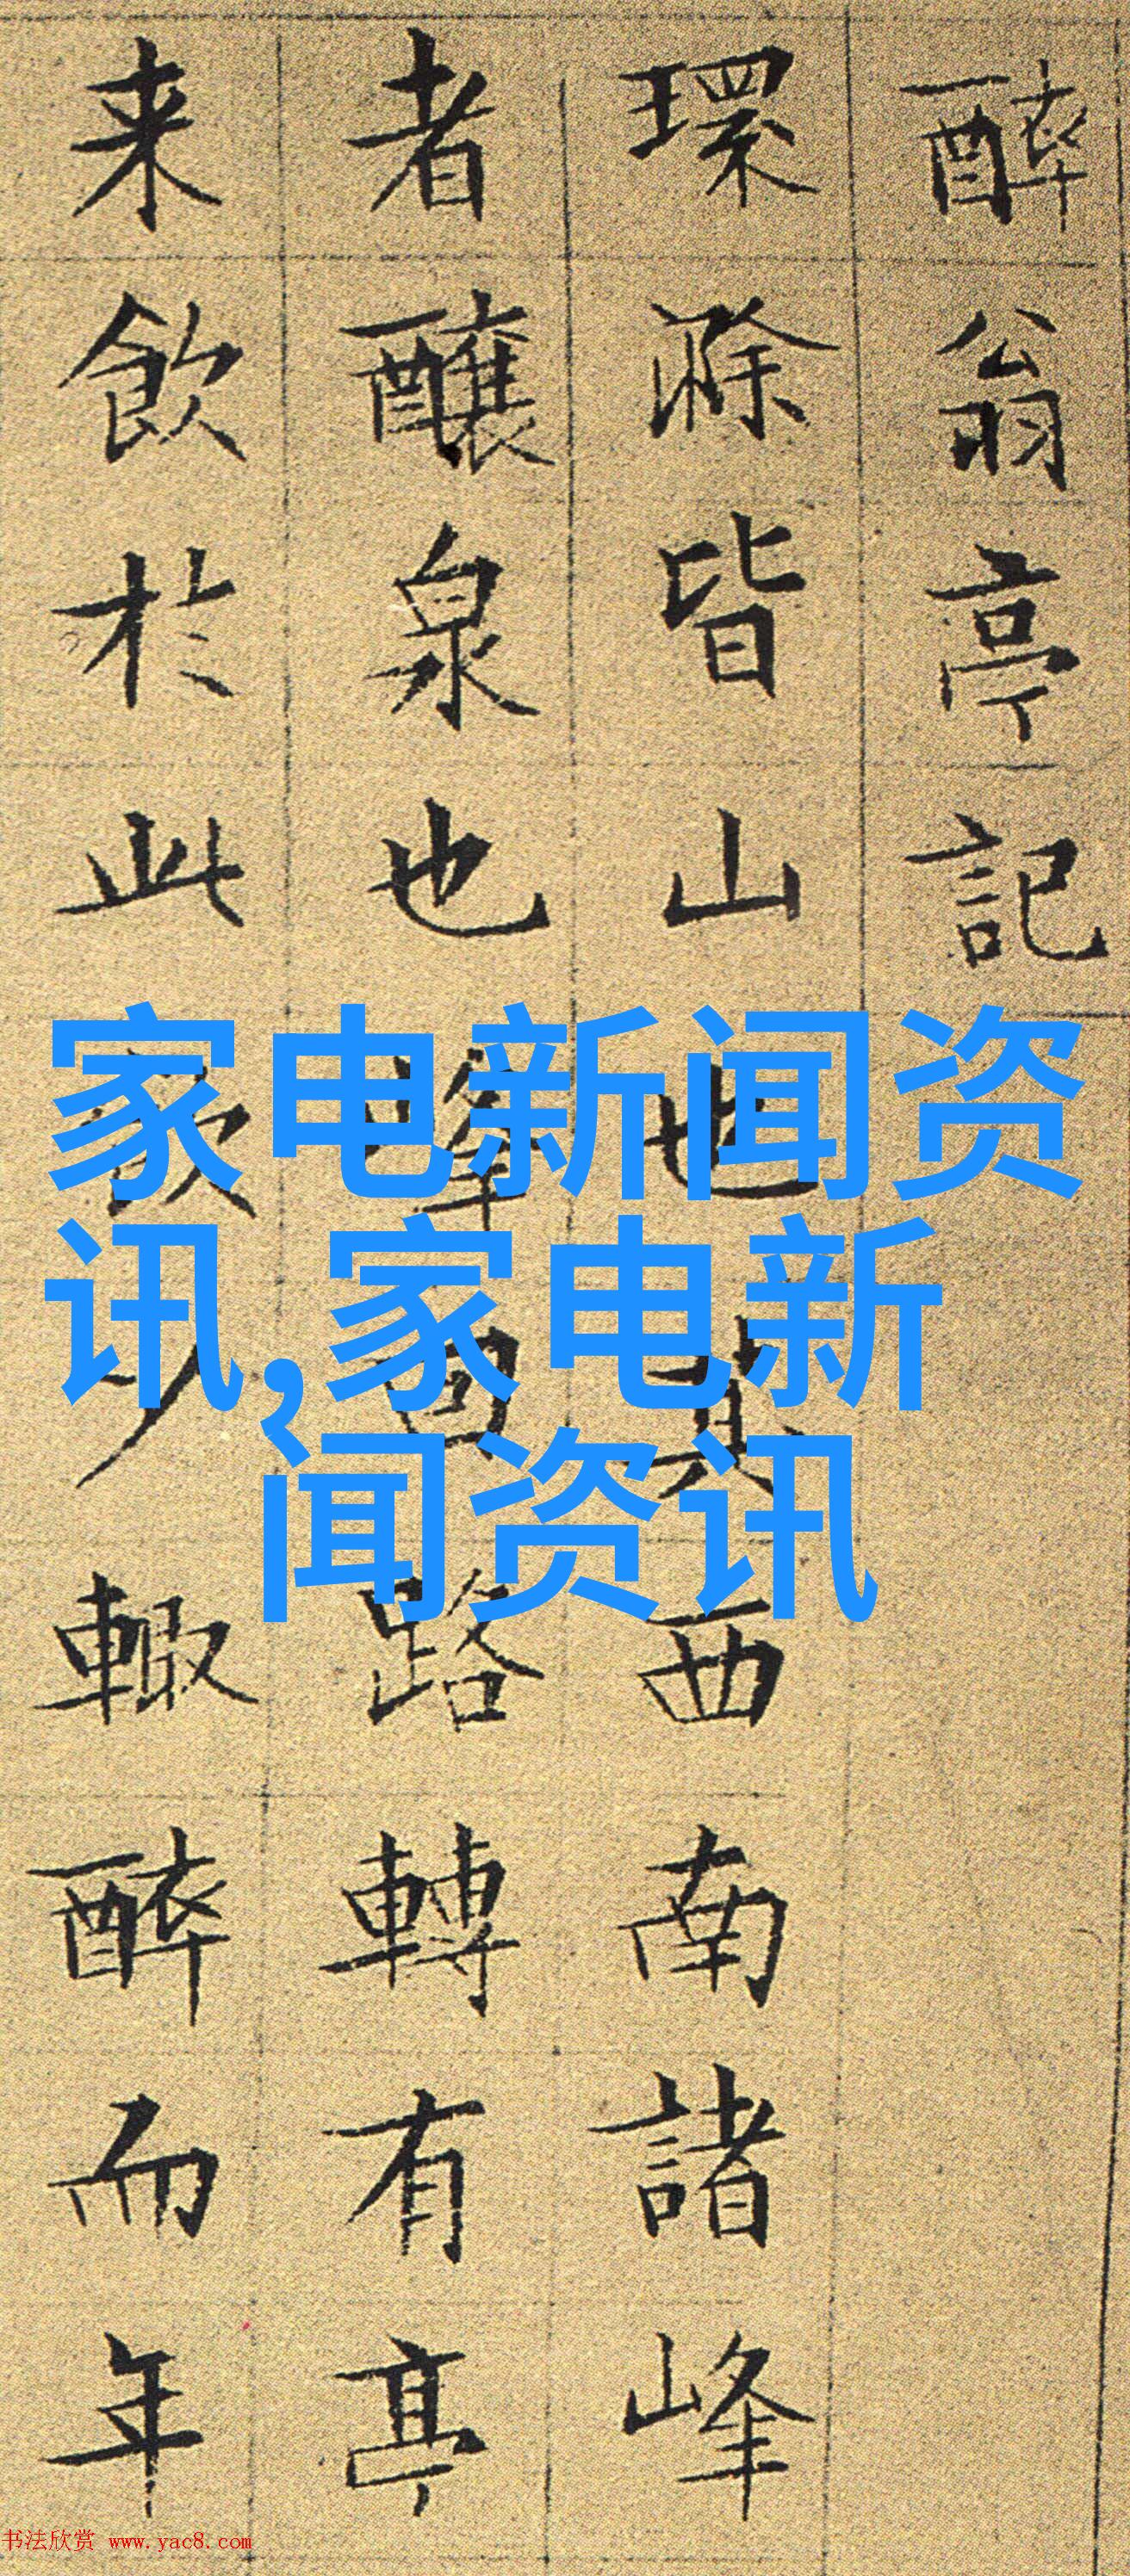 醉翁亭記
環滁皆山也其西南諸峰
者釀泉也峯回路轉有亭
来飲於此飲少輒醉而年
家电新闻资
讯,家电新
闻资讯
书法欣赏 www.yac8.com